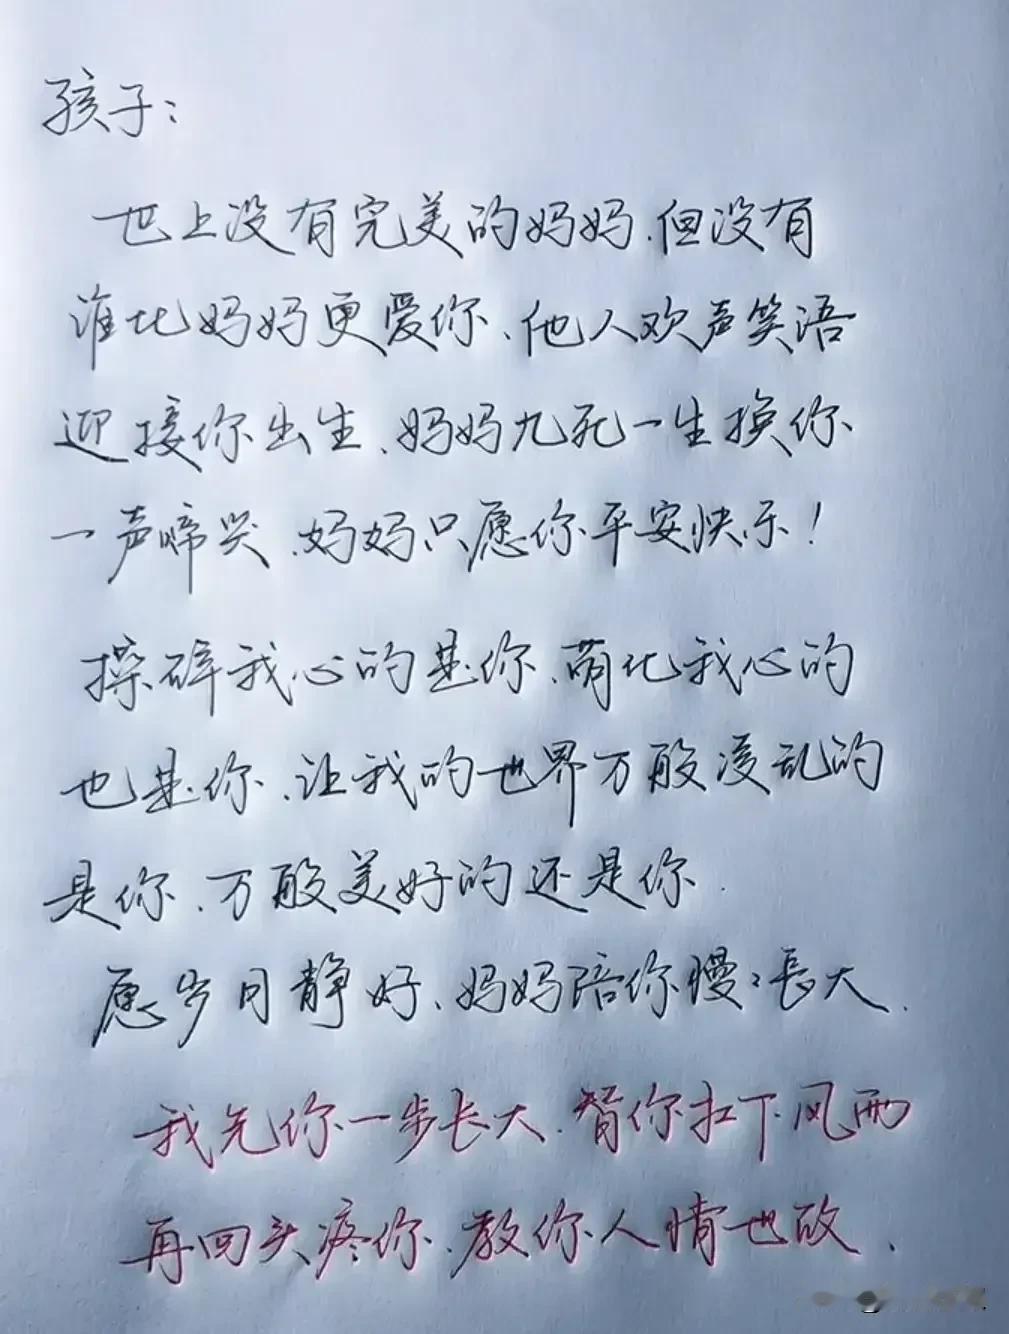 孩子：
世上没有完美的妈妈.但没有
谁比妈妈更爱你、他人欢声笑语
迎接你出生、妈妈九死一生换你
一声啼哭、妈妈只愿你平安快乐！
操碎我心的是你、萌化我心的
也是你、让我的世界万般凌乱的
是你、万般美好的还是你.
愿岁月静好、妈妈陪你慢慢長大.
我先你一步长大、替你扛下风雨
再回头疼你、教你人情世故、